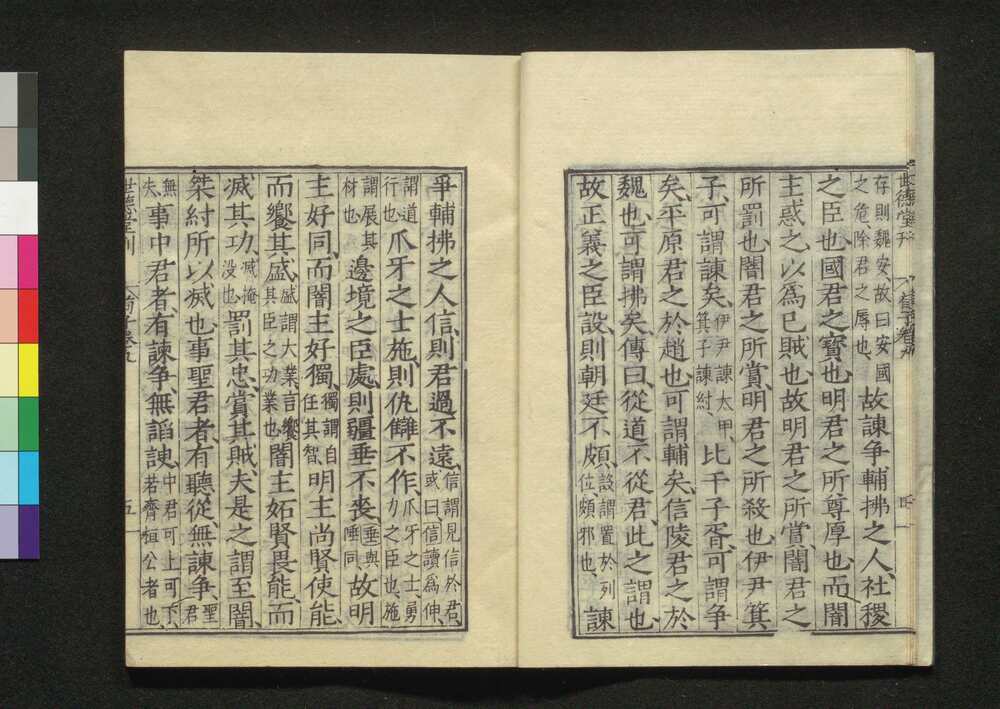 世德堂刊 荀子卷九 四
存則魏安故曰安國之危除君之辱也故諫爭輔拂之人社稷
之臣也國君之寶也明君之所尊厚也而闇
主惑之以爲已賊也故明君之所賞闇君之
所罰也闇君之所賞明君之所殺也伊尹箕
子可謂諫矣伊尹諫太甲箕子諫紂比干子胥可謂爭
矣平原君之於趙也可謂輔矣信陵君之於
魏也可謂拂矣傳曰從道不從君此之謂也
故正義之臣設則朝廷不頗設謂置於列位頗邪也諫
爭輔拂之人信則君過不遠信謂見信於君或曰信讀爲伸
謂道行也爪牙之士施則仇讎不作爪牙之士勇力之臣也施
謂展其材也邊境之臣處則疆垂不喪垂與陲同故明
主好同而闇主好獨獨謂自任其智明主尚賢使能
而饗其盛盛謂大業言饗其臣之功業也闇主妬賢畏能而
滅其功滅掩没也罰其忠賞其賊夫是之謂至闇
桀紂所以滅也事聖君者有聽從無諫爭聖君
無失事中君者有諫爭無諂諛中君可上可下若齊桓公者也
世德堂刊 荀子卷九 五